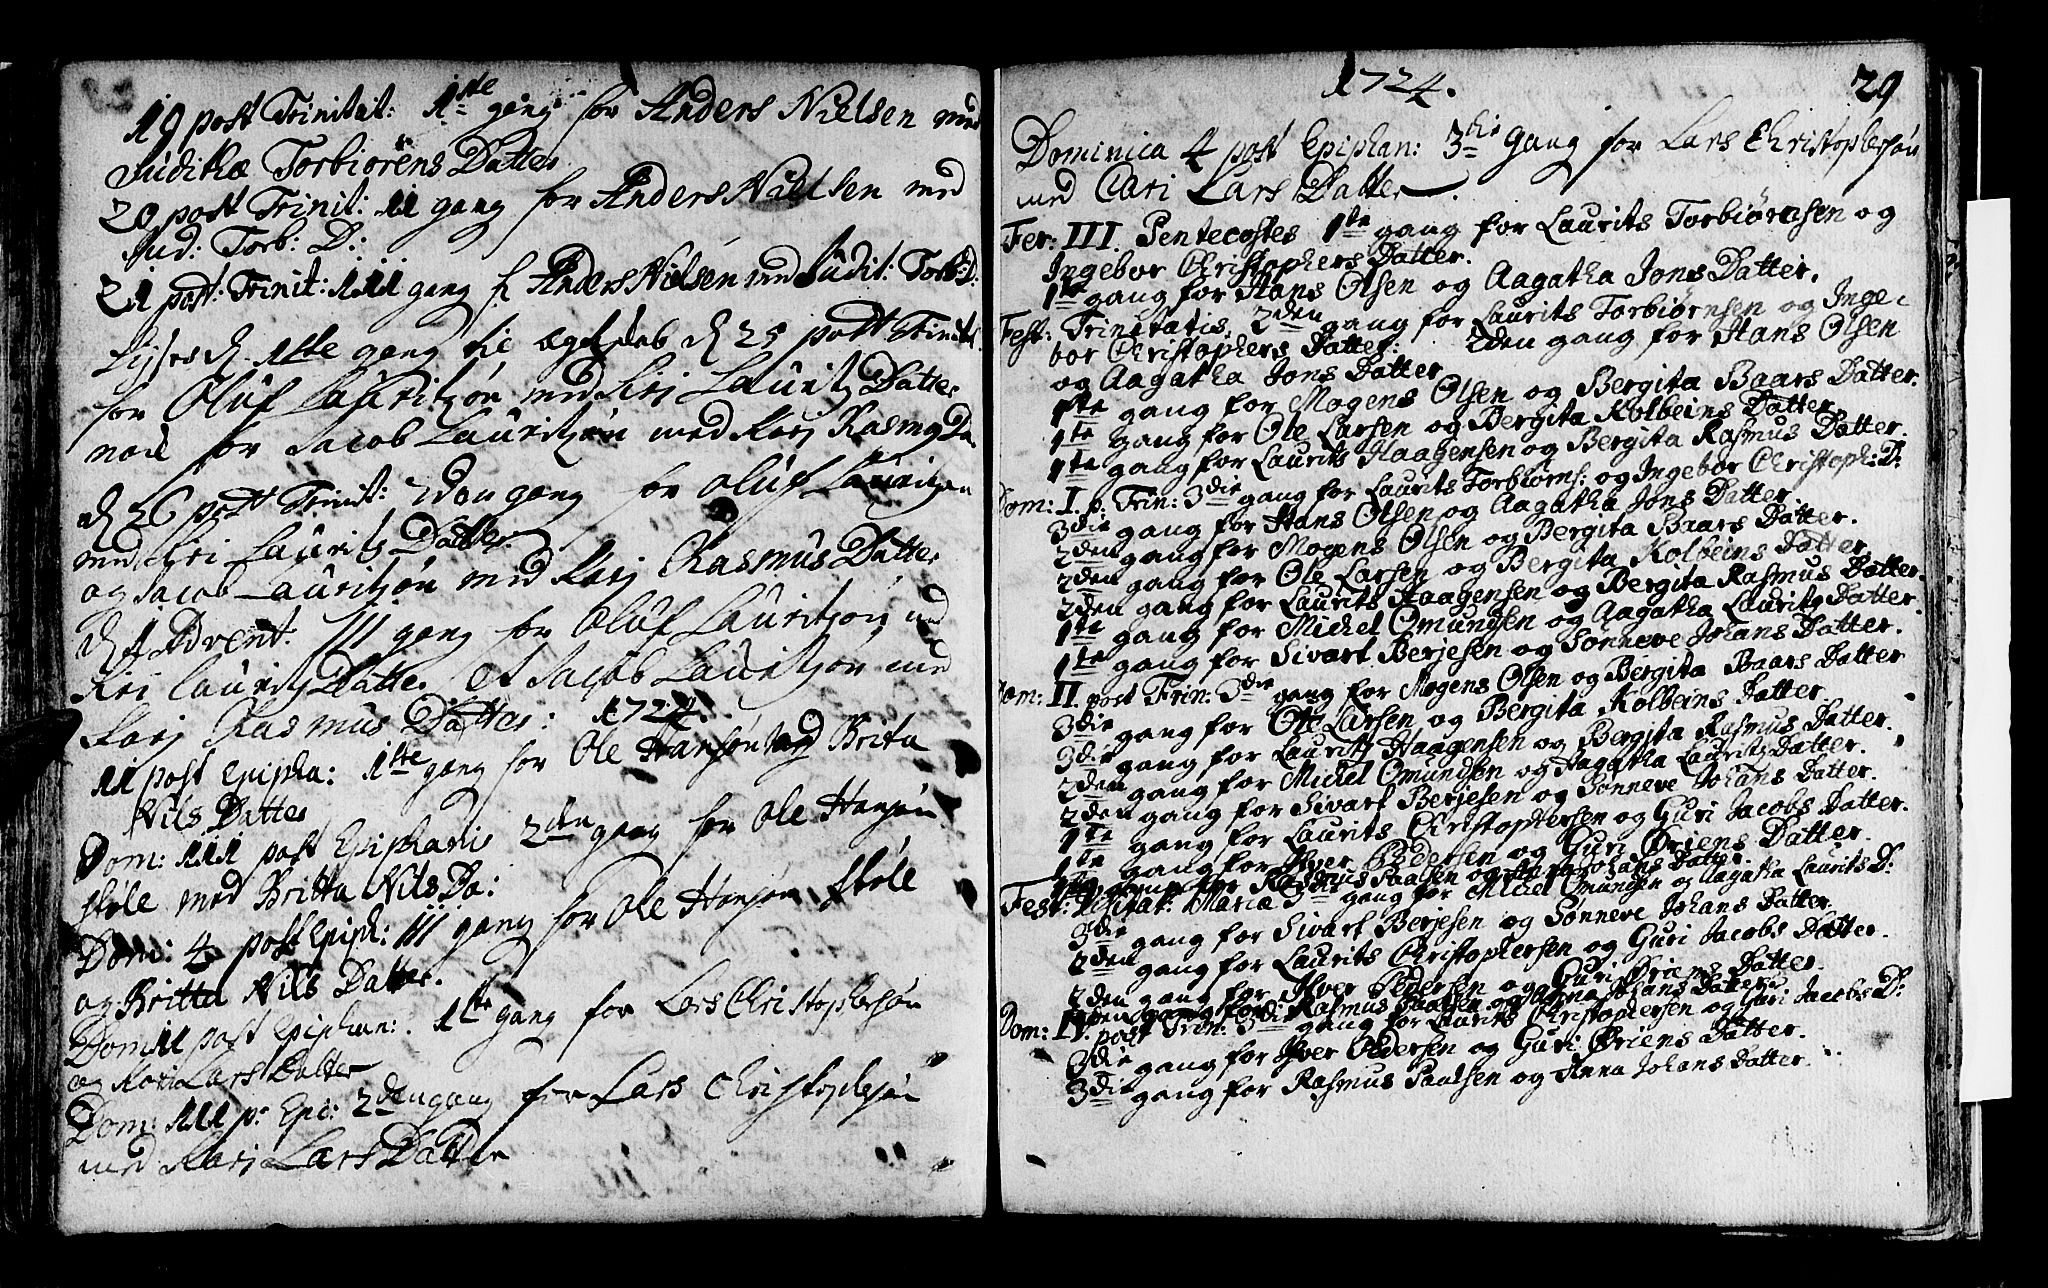 19 post Trinitat: 1ste gang for Anders Nielsen med
Judithæ Torbiörens Datter
20 post Trinit: 11 gang for Anders Nielsen med
Jud: Torb: D:
21 post: Trinit: 111 gang f Anders Nielsen med Judit: Torb: D:
Lyses d. 1ste gang til ægteskab d 25 post Trinit.
for Oluf Lauritzøn med Siri Lauritz Datter
nock for Jacob Lauritzøn med Kari Rasmus Da
d 26 post Trinit: 2den gang for Oluf Lauritzøn
med Siri Lauritz Datter
og Jacob Lauritzøn med Kari Rasmus Datter
d 1 Advent. III gang for Oluf Lauritzøn med
Siri Lauritz Datter. Et Jacob Lauritzøn med
Kari Rasmus Datter:
1724.
11 post Epipha: 1ste gang for Ole Hansøn og Brita
Nils Datter
Dom: 111 post Epiphanis 2den gang for Ole Hansøn
med Britta Nils Da:
Dom: 4 post Epiph: III gang for Ole Hansøn
og Britta Nils Datter.
Dom 11 post Epiphan: 1ste gang for Lars Christophersøn
og Kari Lars Datter
Dom: 111 p: Epi: 2den gang for Lars Christophersøn
med Kari Lars Datter
1724.
29
Dominica 4 post Epiphan: 3die gang for Lars Christophersøn
med Cari Lars Datter
Fer: III Pentecostes 1ste gang for Laurits Torbiørnsen og
Ingebor Christophers Datter.
1ste gang for Hans Olsen og Aagatha Jons Datter.
Fest: Trinitatis, 2den gang for Laurits Torbiørnsen og Inge-
bor Christophers Datter. 2den gang for Hans Olsen
og Aagatha Jons Datter
1ste gang for Mogens Olsen og Bergita Baars Datter.
1ste gang for Ole Larsen og Bergita Kolbeins Datter.
1ste gang for Laurits Haagensen og Bergita Rasmus Datter.
Dom: I. p. Trin: 3die gang for Laurits Torbiørns: og Ingebor Christoph: D:
3die gang for Hans Olsen og Aagatha Jons Datter.
2den gang for Mogens Olsen og Bergita Baars Datter.
2den gang for Ole Larsen og Bergita Kolbeins Datter.
2den gang for Laurits Haagensen og Bergita Rasmus Datter.
1ste gang for Michel Omundsen og Aagatha Lauritz Datter.
1ste gang for Sivart Berjesen og Sønneve Johans Datter.
Dom: II. post Trin: 3die gang for Mogens Olsen og Bergita Baars Datter
3die gang for Ole Larsen og Bergita Kolbeins Datter.
3die gang for Lauritz Haagensen og Bergita Rasmus Datter.
2den gang for Michel Omundsen og Aagatha Lauritz Datter.
2den gang for Sivart Berjesen og Sønneve Johans Datter.
1ste gang for Laurits Christophersen og Guri Jacobs Datter.
1ste gang for Iver Pedersen og Guri Øriens Datter.
1ste gang for Rasmus Paulsen og Anna Johans Datter.
Fest: Visitat: Mariæ 3die gang for Michel Omundsen og Aagatha Laurits D:
3die gang for Sivart Berjesen og Sønneve Johans Datter.
2den gang for Laurits Christophersen og Guri Jacobs Datter.
2den gang for Iver Pedersen og Guri Øriens Datter.
2den gang for Rasmus Paulsen og Anna Johans Datter.
Dom: IV. post Trin: 3die gang for Laurits Christophersen og Guri Jacobs D:
3die gang for Iver Pedersen og Guri Øriens Datter.
3die gang for Rasmus Paulsen og Anna Johans Datter.